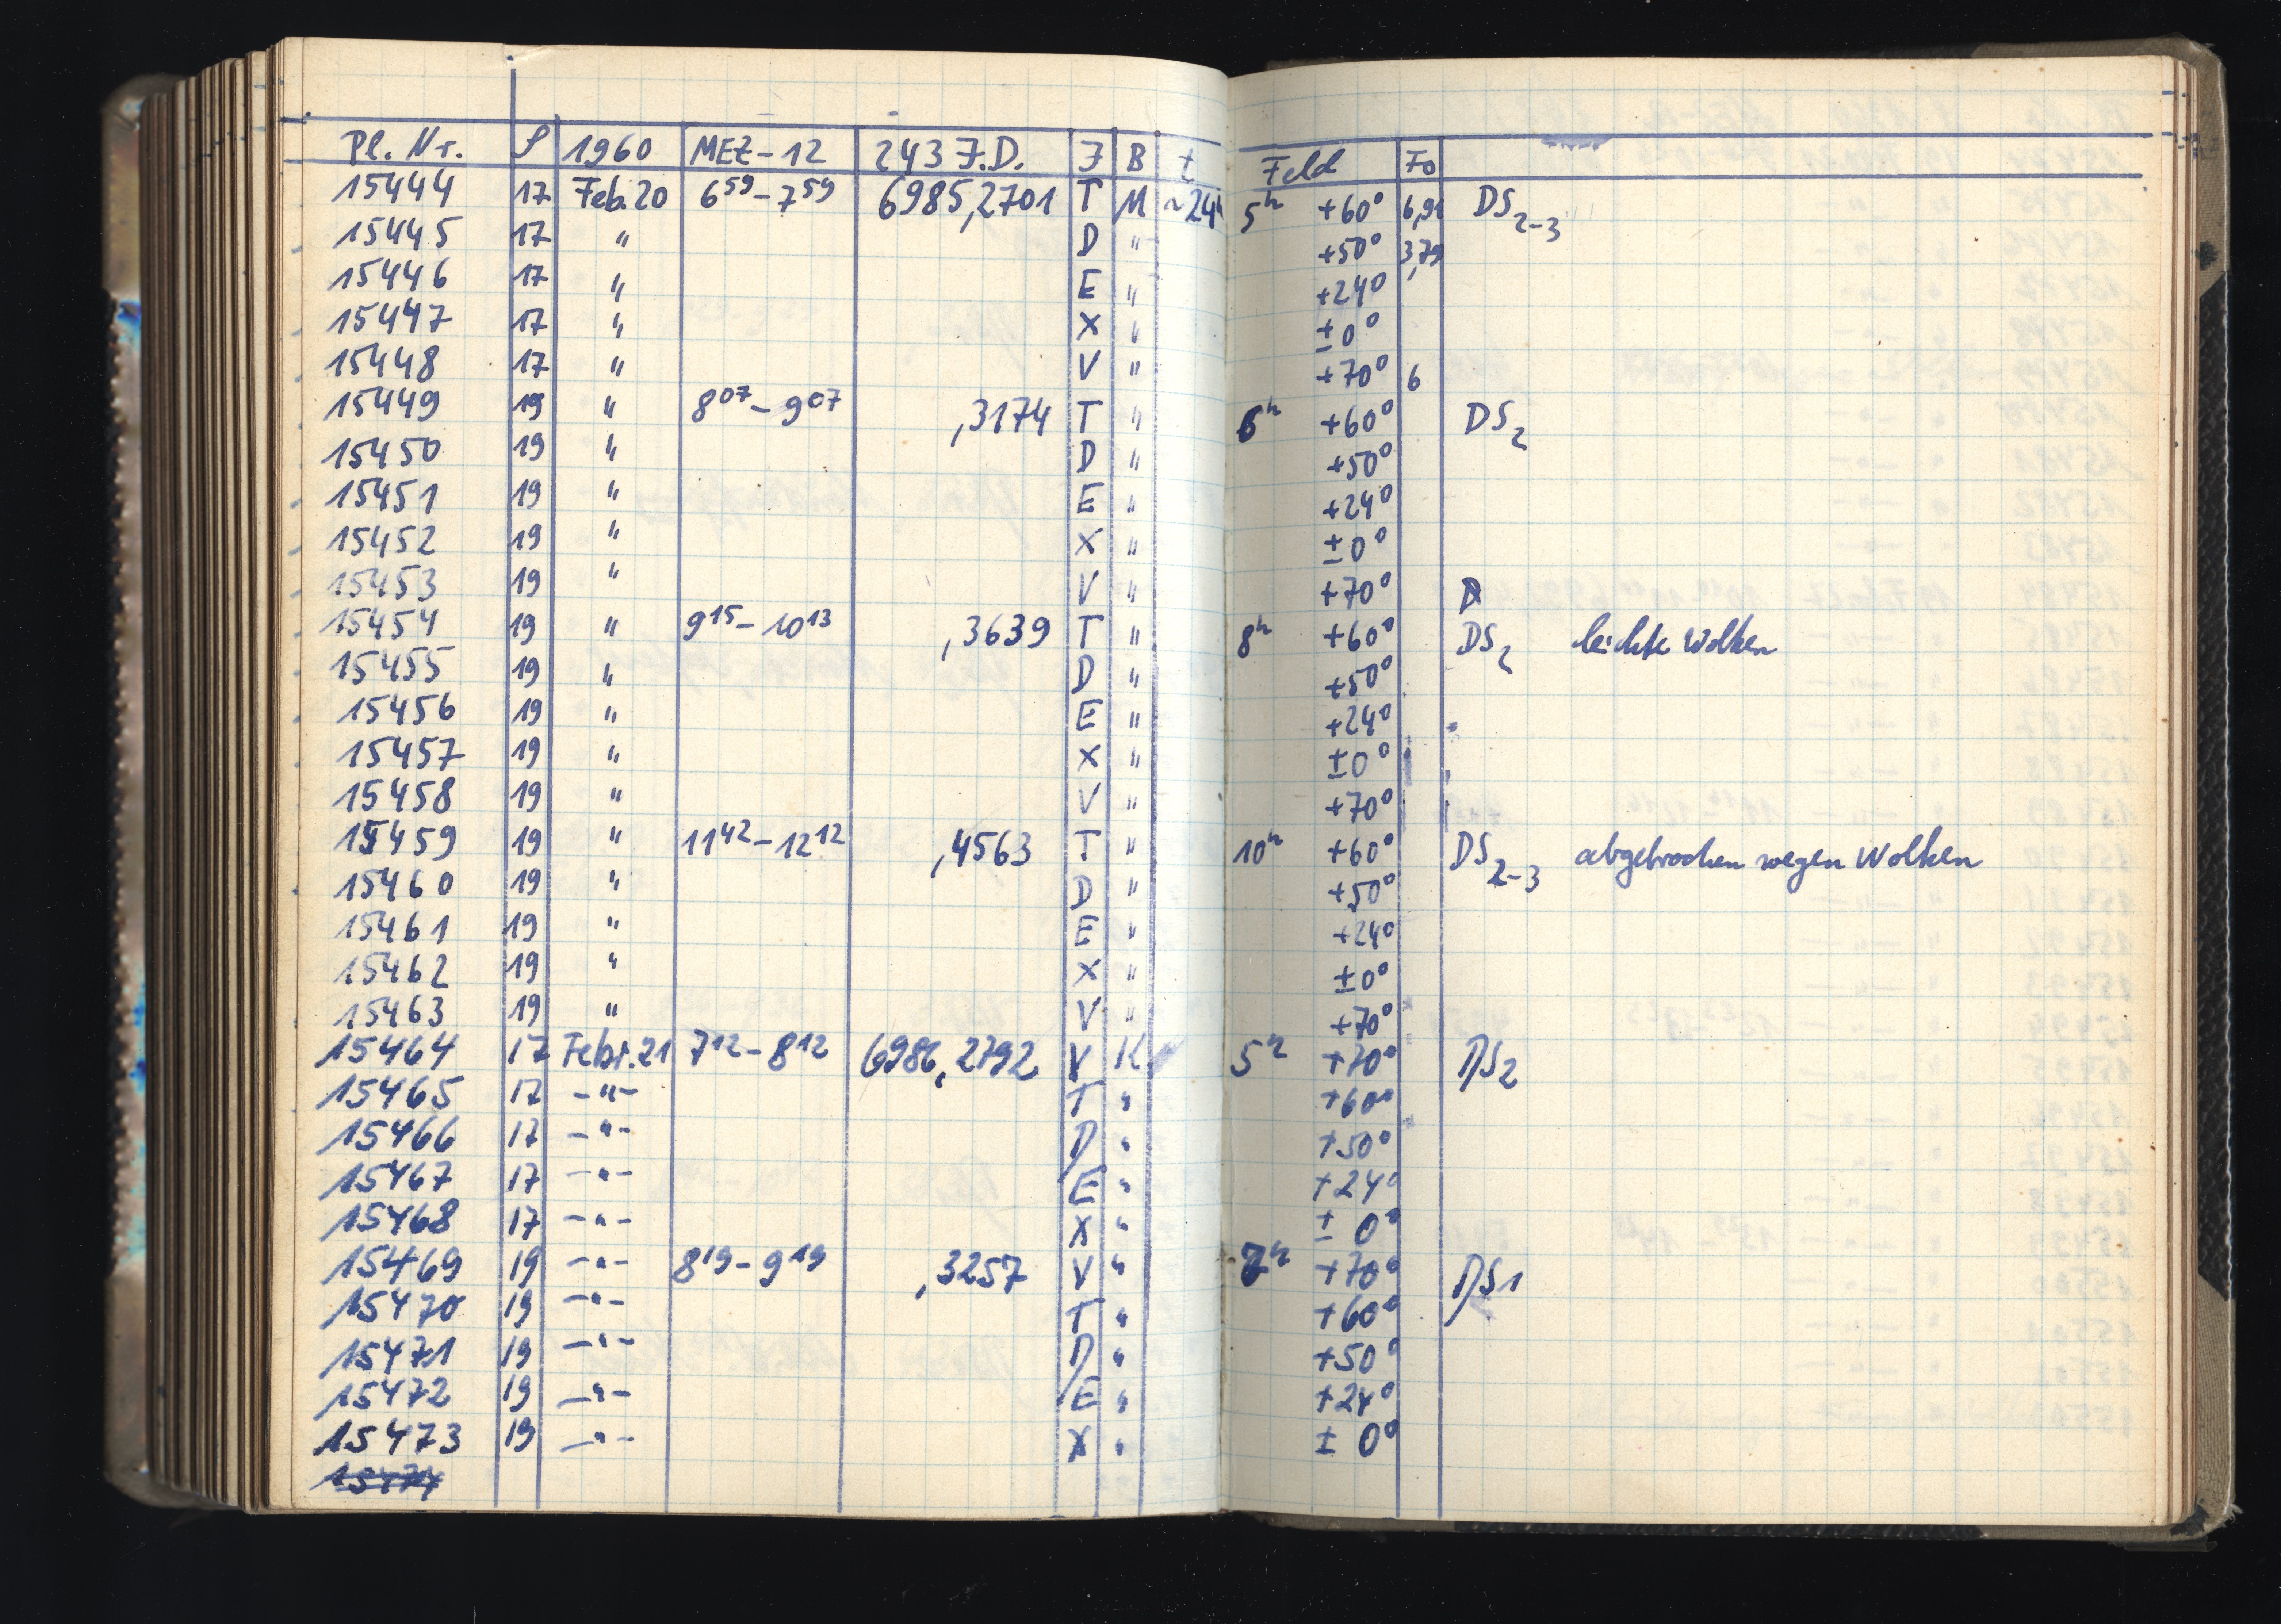 Pl. Nr. S 1960 MEZ-12 243 J.D. J B t Feld Fo
15444 17 Feb. 20 6⁵⁹-7⁵⁹ 6985,2701 T M ~24 5ʰ +60° 6,91 DS₂₋₃
15445 17 " D " +50° 3,79
15446 17 " E " +24°
15447 17 " X " ±0°
15448 17 " V " +70° 6
15449 19 " 8⁰⁷-9⁰⁷ ,3174 T " 6ʰ +60° DS₂
15450 19 " D " +50°
15451 19 " E " +24°
15452 19 " X " ±0°
15453 19 " V " +70°
15454 19 " 9¹⁵-10¹³ ,3639 T " 8ʰ +60° DS₂ leichte Wolken
15455 19 " D " +50°
15456 19 " E " +24°
15457 19 " X " ±0°
15458 19 " V " +70°
15459 19 " 11⁴²-12¹² ,4563 T " 10ʰ +60° DS₂₋₃ abgebrochen wegen Wolken
15460 19 " D " +50°
15461 19 " E " +24°
15462 19 " X " ±0°
15463 19 " V " +70°
15464 17 Febr. 21 7¹²-8¹² 6986,2792 V K 5ʰ +70° DS2
15465 17 -"- T " +60°
15466 17 -"- D " +50°
15467 17 -"- E " +24°
15468 17 -"- X " ± 0°
15469 19 -"- 8¹⁹-9¹⁹ ,3257 V " 7ʰ +70° DS1
15470 19 -"- T " +60°
15471 19 -"- D " +50°
15472 19 -"- E " +24°
15473 19 -"- X " ± 0°
15474